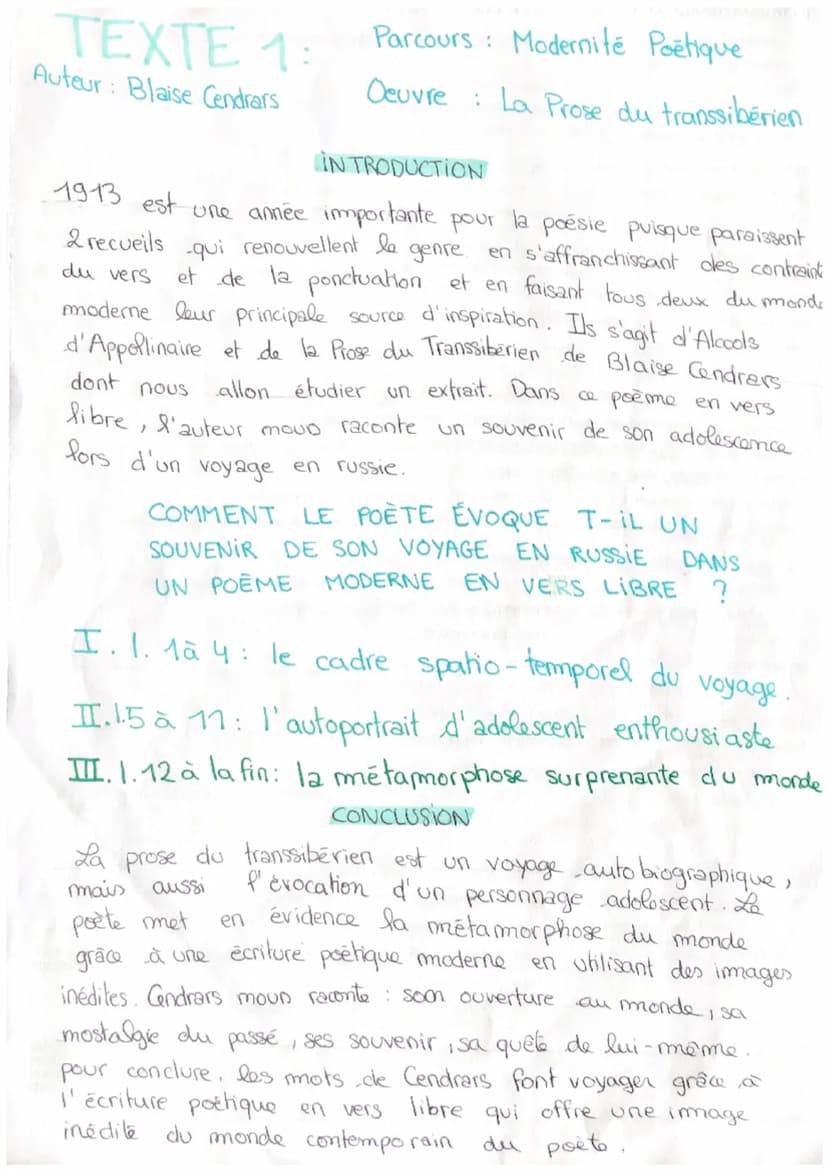 TEXTE 1 :
Parcours : Modernité Poëtique
Auteur : Blaise Cendrars
Oeuvre : La Prose du transsibérien
INTRODUCTION
1913 est une année importante pour la poésie puisque paraissent
2 recueils qui renouvellent le genre en s'affranchissant des contraint
du vers et de la ponctuation et en faisant tous deux du monde
moderne leur principale source d'inspiration. Ils s'agit d'Alcools
d'Appollinaire et de la Prose du Transsibérien de Blaise Cendrars
dont nous allon étudier un extrait. Dans ce poème en vers
libre, l'auteur nous raconte un souvenir de son adolescence
lors d'un voyage en russie.
COMMENT LE POÈTE ÉVOQUE T-IL UN
SOUVENIR DE SON VOYAGE EN RUSSIE DANS
UN POÈME MODERNE EN VERS LIBRE ?
I. l. 1 à 4 : le cadre spatio-temporel du voyage.
II. l.5 à 11 : l'autoportrait d'adolescent enthousiaste
III. l.12 à la fin : la métamorphose surprenante du monde
CONCLUSION
La prose du transsibérien est un voyage autobiographique,
mais aussi l'évocation d'un personnage adolescent. Le
poète met en évidence la métamorphose du monde
grâce à une écriture poëtique moderne en utilisant des images
inédites. Cendrars nous raconte : son ouverture au monde, sa
nostalgie du passé, ses souvenir, sa quête de lui-même.
pour conclure, les mots de Cendrars font voyager grâce à
l'écriture poëtique en vers libre qui offre une image
inédite du monde contemporain du poète.